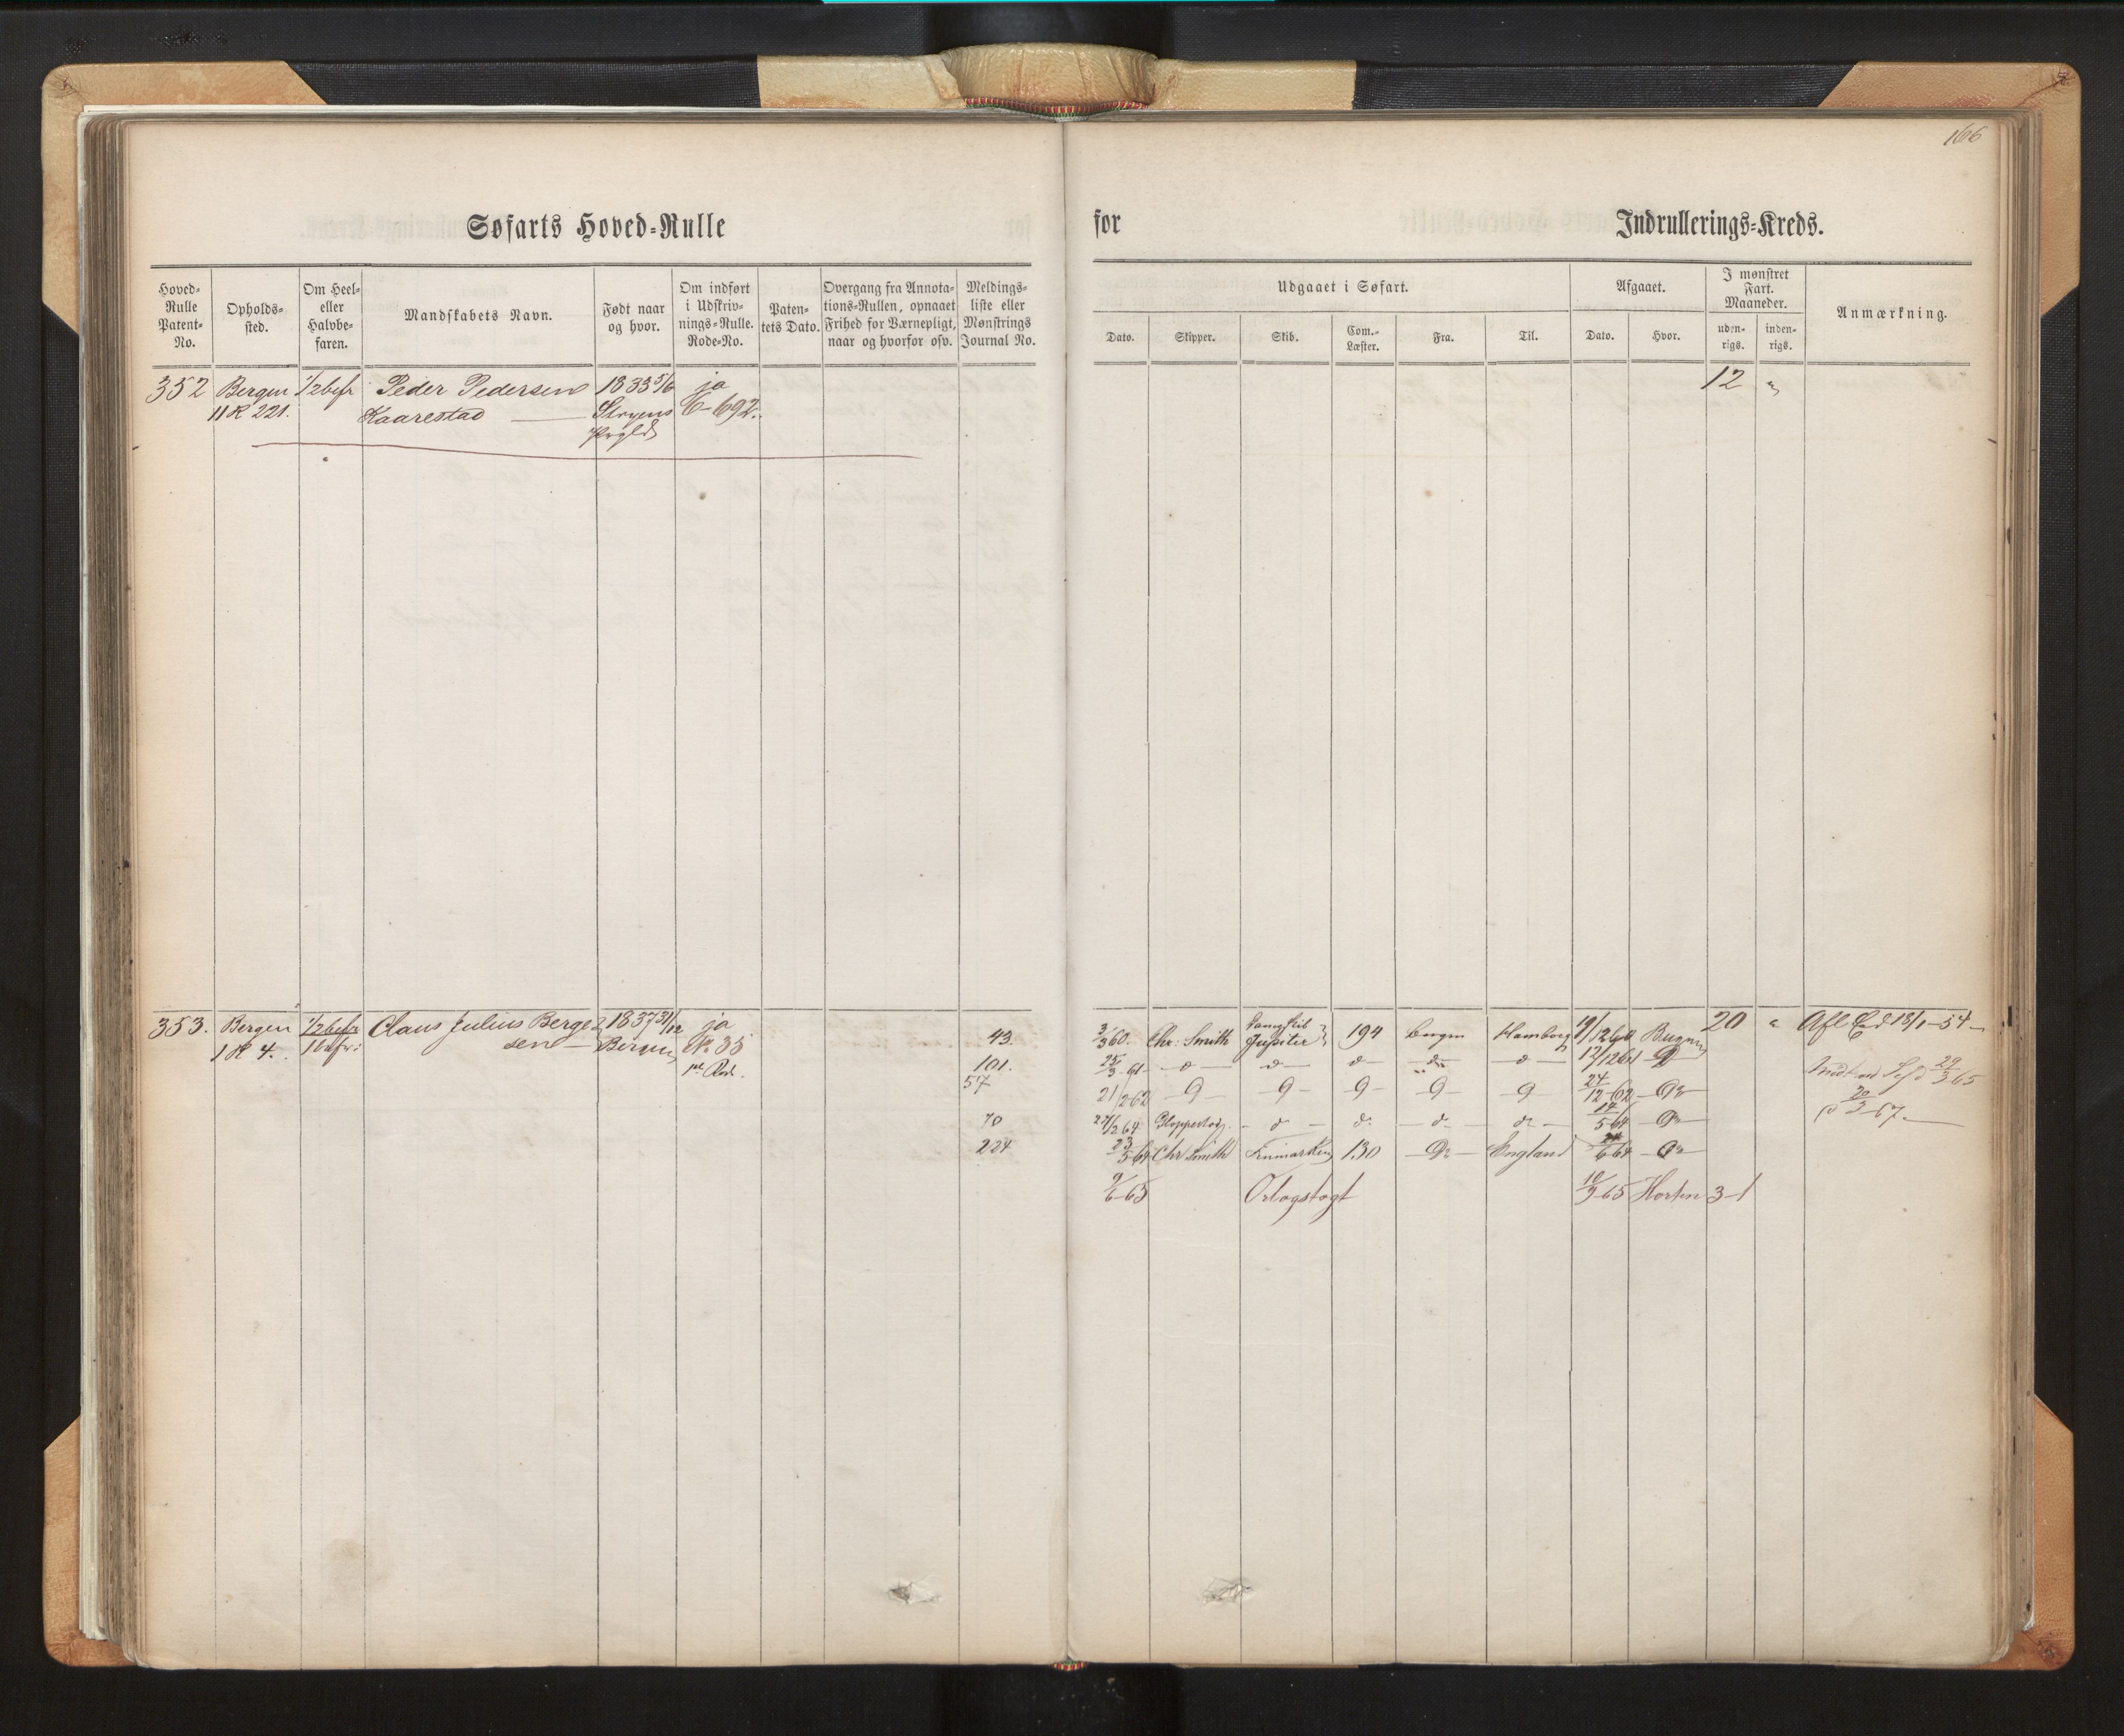 166
Søfarts Hoved-Rulle
for Indrullerings-Kreds.
Hoved-Rulle Patent-No.
Opholds-sted.
Om Heel- eller Halvbe-faren.
Mandskabets Navn.
Født naar og hvor.
Om indført i Udskriv-nings-Rulle. Rode-No.
Paten-tets Dato.
Overgang fra Annota-tions-Rullen, opnaaet Frihed for Værnepligt, naar og hvorfor osv.
Meldings-liste eller Mønstrings Journal No.
Udgaaet i Søfart.
Dato. Skipper. Skib. Com.-Læster. Fra. Til.
Afgaaet.
Dato. Hvor.
I mønstret Fart. Maaneder.
uden-rigs. inden-rigs.
Anmærkning.
352 Bergen 1/2 befr Peder Pedersen 1833 5/6 ja 12 "
11 R 221. Kaarestad Stryens 6-692.
Prgld
353. Bergen 1/2 befr Claus Julius Berge 1837 31/12 ja
1 R 4. 1 befr: sen Bergen No. 35
1ste Rod.
43. 3/3 60. Chr. Smith Dampskib Jupiter 194 Bergen Hamborg 19/12 60 Bergen 20 " Afl Eed 18/1-54
101. 25/3-61 - d - d - d - d - d - 12/12 61 D
57 21/2 62 - d - d - d - d - d 24/12-62 - do
29/3 65
20/3-67.
70 27/2 64 - d - do - do - do - 14/5 64 - do
224 23/5 64 Chr Smith Finmarken 130 - do - England 24/6 64 - do
9/6-65 Orlogstogt 10/9-65 Horten 3-1